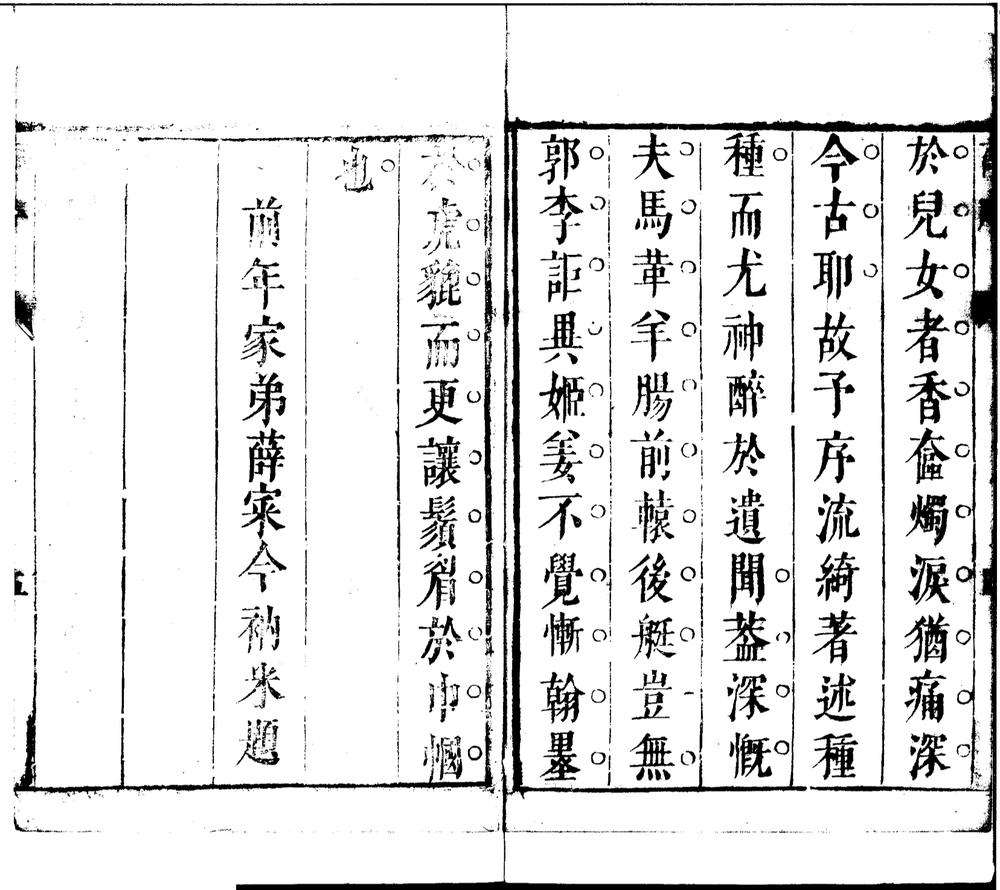 於兒女者香奩燭淚猶痛深
今古耶故予序流綺著述種
種而尤神醉於遺聞葢深慨
夫馬革羊腸前轅後艇豈無
郭李詎異姬姜不覺慚翰墨
於虎貔而更讓鬚眉於巾幗
也
前年家弟薛寀今衲米題